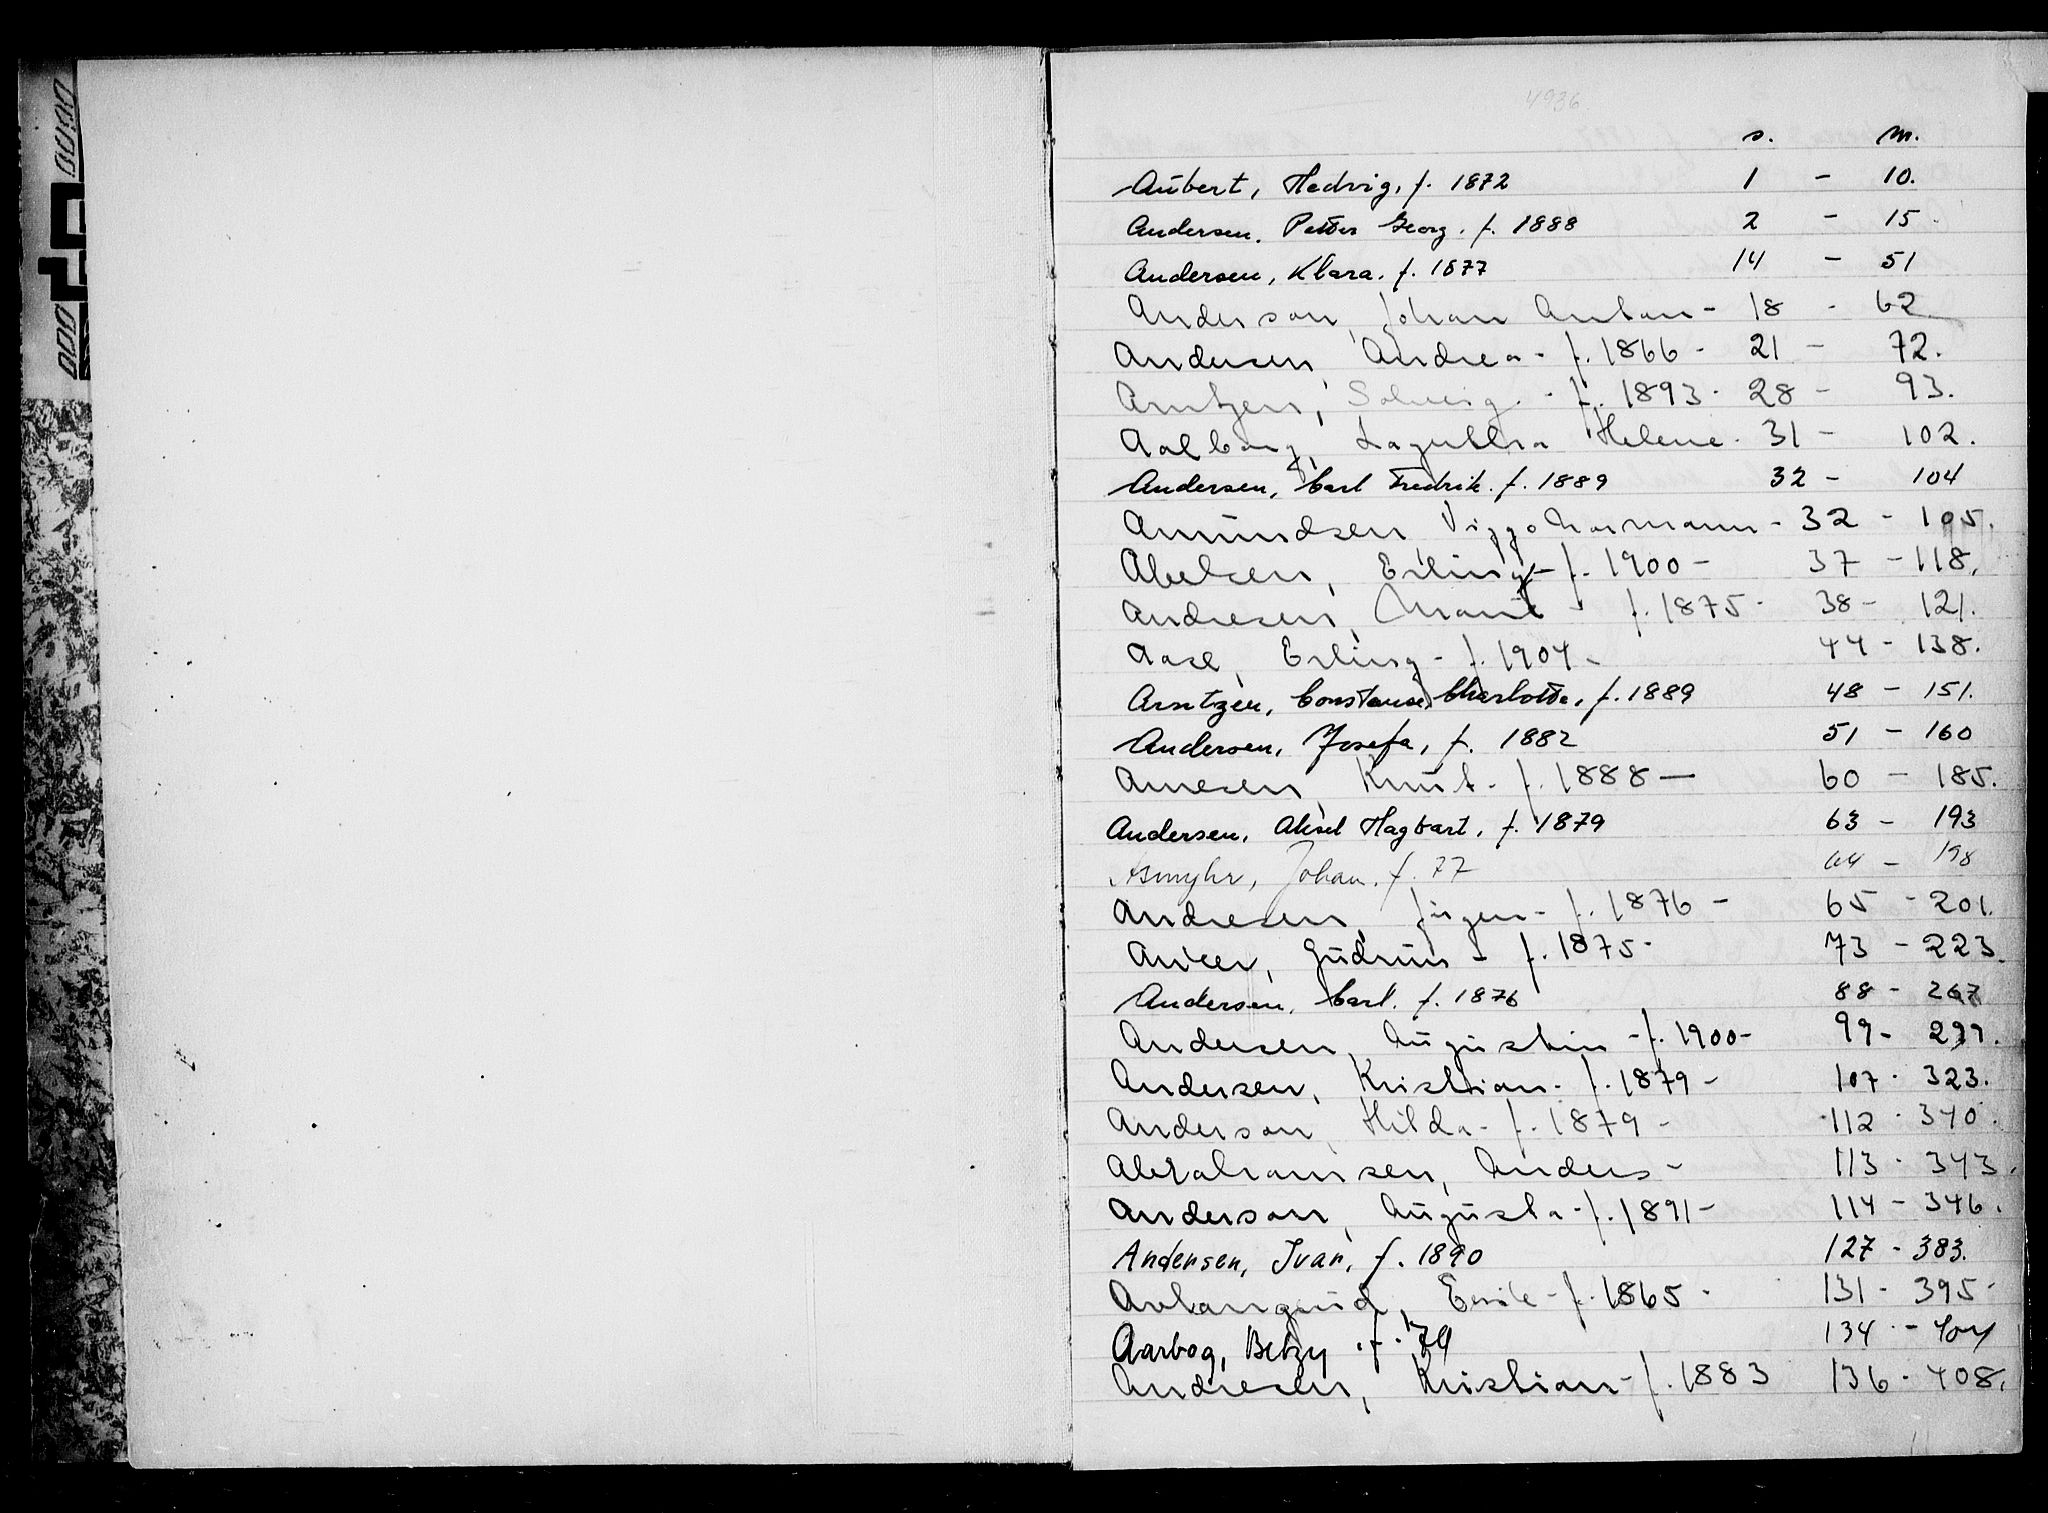 4936
s. m.
Aubert, Hedvig, f. 1872 1 - 10.
Andersen, Petter Georg. f. 1888 2 - 15.
Andersen, Klara. f. 1877 14 - 51
Anderson, Johan Anton - 18 - 62
Andersen, Andrea - f. 1866 - 21 - 72.
Arntzen, Solveig - f. 1893 - 28 - 93.
Aalborg, Helene - 31 - 102.
Andersen, Carl Fredrik. f. 1889 32 - 104
Amundsen Viggo Normann - 32 - 105.
Abelsen, Erling - f. 1900 - 37 - 118.
Andresen, Marie - f. 1875 - 38 - 121.
Aase, Erling - f. 1904 - 44 - 138.
Arntzen, Constanse Charlotte, f. 1889 48 - 151.
Andersen, Josefa, f. 1882 51 - 160
Arnesen, Knut - f. 1888 - 60 - 185.
Andersen, Aksel Hagbart, f. 1879 63 - 193
Asmyhr, Johan. f. 77 64 - 198
Andresen, Jürgen - f. 1876 - 65 - 201.
Anker, Gudrun - f. 1875 - 73 - 223.
Andersen, Carl. f. 1876 88 - 267
Andersen, Augustin - f. 1900 - 99 - 299.
Andersen, Kristian - f. 1879 - 107 - 323.
Anderson, Hilda - f. 1879 - 112 - 340.
Abrahamsen, Anders - 113 - 343.
Anderson, Augusta - f. 1891 - 114 - 346.
Andersen, Ivar, f. 1890 127 - 383.
f. 1865 - 131 - 395 -
Aarbog, Betzy . f. 79 134 - 404
Andresen, Kristian - f. 1883 136 - 408.